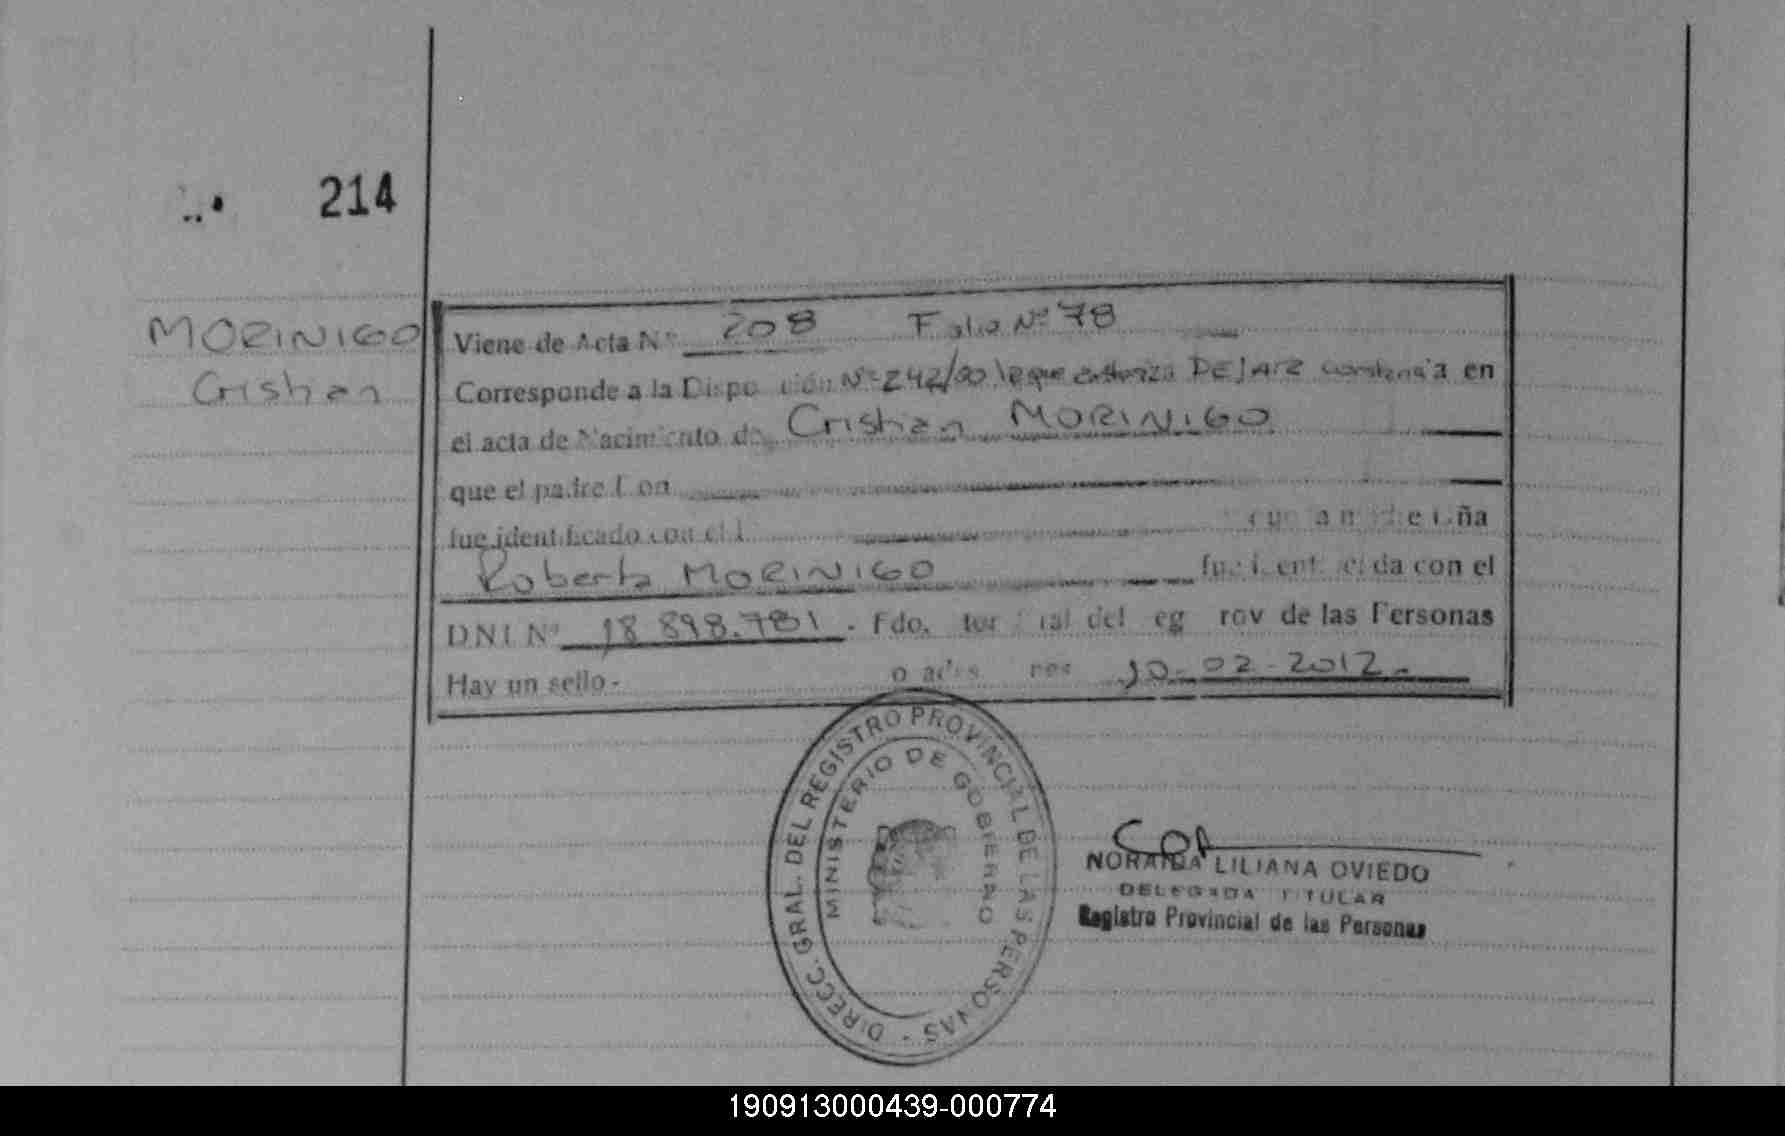 214
MORINIGO
Cristian
Viene de Acta Nº 208 Folio Nº 78
Corresponde a la Disposición Nº 242/00 que autoriza DEJAR constancia en
el acta de Nacimiento de Cristian MORINIGO
que el padre Don
fue identificado con el
Roberta MORINIGO
DNI Nº 18 898.781. Fdo. del de las Personas
Hay un sello - 10-02-2012.
DIRECC. GRAL. DEL REGISTRO PROVINCIAL DE LAS PERSONAS
MINISTERIO DE GOBIERNO
NORAIDA LILIANA OVIEDO
DELEGADA TITULAR
Registro Provincial de las Personas
190913000439-000774